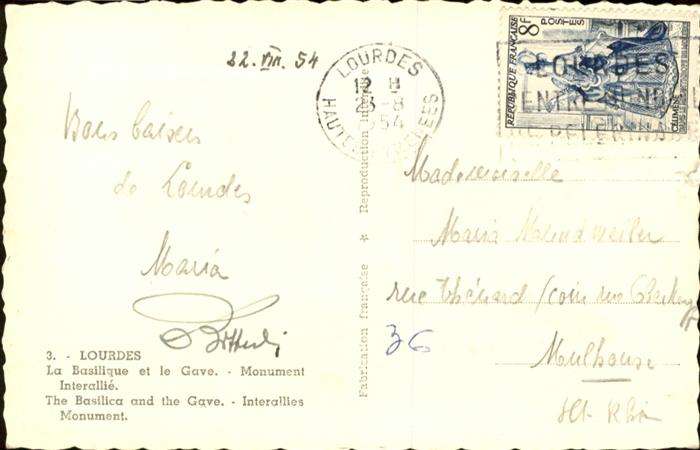 22. VIII. 54
LOURDES
12 H
-8
54
HAUTES PYRENEES
8F
POSTES
RÉPUBLIQUE FRANÇAISE
LOURDES
Bons baisers
de Lourdes
Maria
3. - LOURDES
La Basilique et le Gave. - Monument
Interallié.
The Basilica and the Gave. - Interallies
Monument.
Fabrication française * Reproduction interdite
Mademoiselle
Maria
rue Thénard / coin rue
36
Mulhouse
Ht Rhin